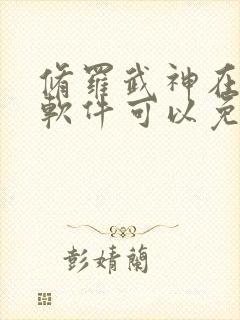 脩羅武神在
軟件可以免
彭婧蘭